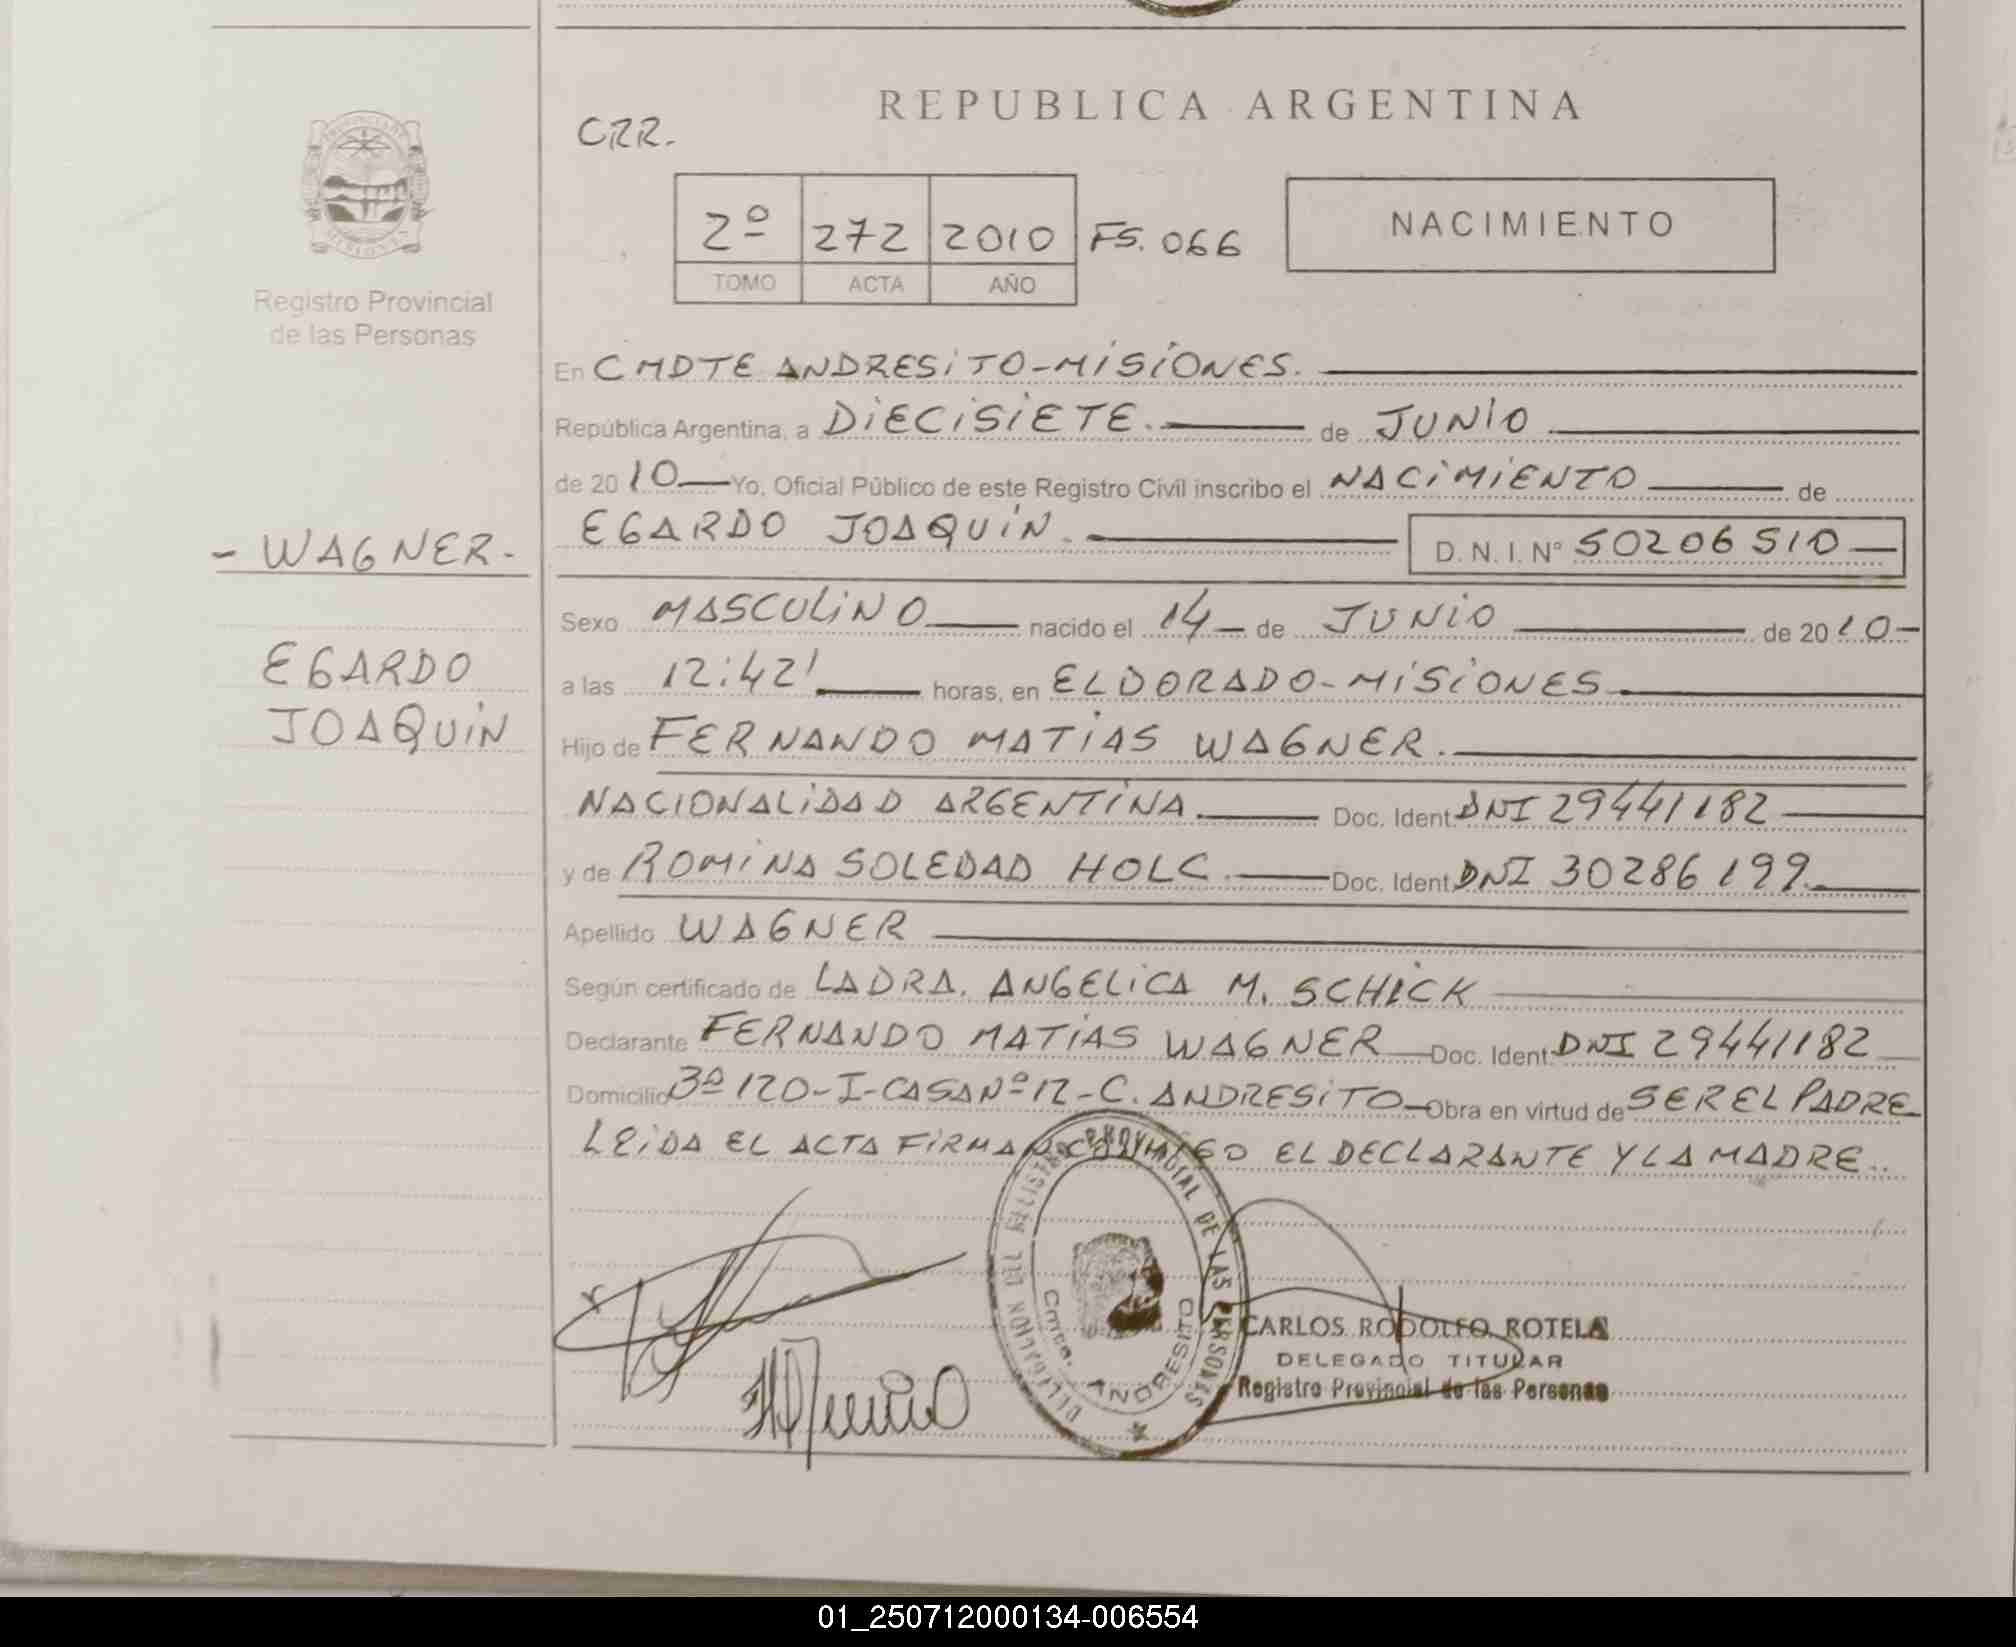 REPUBLICA ARGENTINA
CRR.
2º 272 2010 FS. 066
TOMO ACTA AÑO
NACIMIENTO
Registro Provincial
de las Personas
En CMDTE ANDRESITO-MISIONES.
República Argentina, a DIECISIETE. de JUNIO
de 2010 Yo, Oficial Público de este Registro Civil inscribo el NACIMIENTO de
EGARDO JOAQUIN. D. N. I. Nº 50206510
- WAGNER -
EGARDO
JOAQUIN
Sexo MASCULINO nacido el 14 de JUNIO de 2010
a las 12:42' horas, en ELDORADO-MISIONES
Hijo de FERNANDO MATIAS WAGNER.
NACIONALIDAD ARGENTINA. Doc. Ident. DNI 29441182
y de ROMINA SOLEDAD HOLC. Doc. Ident. DNI 30286199.
Apellido WAGNER
Según certificado de LA DRA. ANGELICA M. SCHICK
Declarante FERNANDO MATIAS WAGNER Doc. Ident. DNI 29441182
Domicilio 3º 120-I-CASA Nº 12-C. ANDRESITO Obra en virtud de SER EL PADRE
LEIDA EL ACTA FIRMAN CONMIGO EL DECLARANTE Y LA MADRE..
DELEGACION DEL REGISTRO PROVINCIAL DE LAS PERSONAS
Cmte. ANDRESITO
CARLOS RODOLFO ROTELA
DELEGADO TITULAR
Registro Provincial de las Personas
01_250712000134-006554